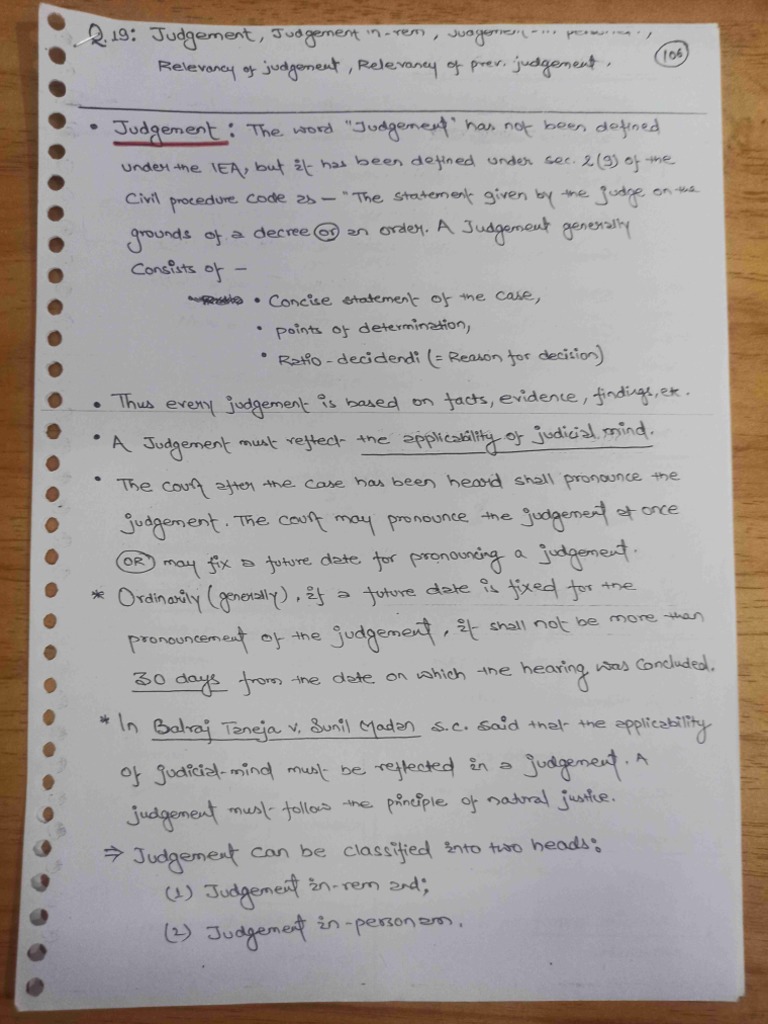 Q.19: Judgement, Judgement in-rem, Judgement in- personam,
Relevancy of judgement, Relevancy of prev. judgement.
106
• Judgement: The word "Judgement" has not been defined
under the IEA, but it has been defined under sec. 2(9) of the
Civil procedure code as – "The statement given by the judge on the
grounds of a decree OR an order. A Judgement generally
Consists of –
• Concise statement of the case,
• points of determination,
• Ratio-decidendi (= Reason for decision)
• Thus every judgement is based on facts, evidence, findings, etc.
• A Judgement must reflect the applicability of judicial mind.
• The court after the case has been heard shall pronounce the
judgement. The court may pronounce the judgement at once
OR may fix a future date for pronouncing a judgement.
* Ordinarily (generally), if a future date is fixed for the
pronouncement of the judgement, it shall not be more than
30 days from the date on which the hearing was concluded.
* In Balraj Taneja v. Sunil Madan s.c. said that the applicability
of judicial-mind must be reflected in a judgement. A
judgement must follow the principle of natural justice.
⇒ Judgement can be classified into two heads:
(1) Judgement in-rem and;
(2) Judgement in-personam.